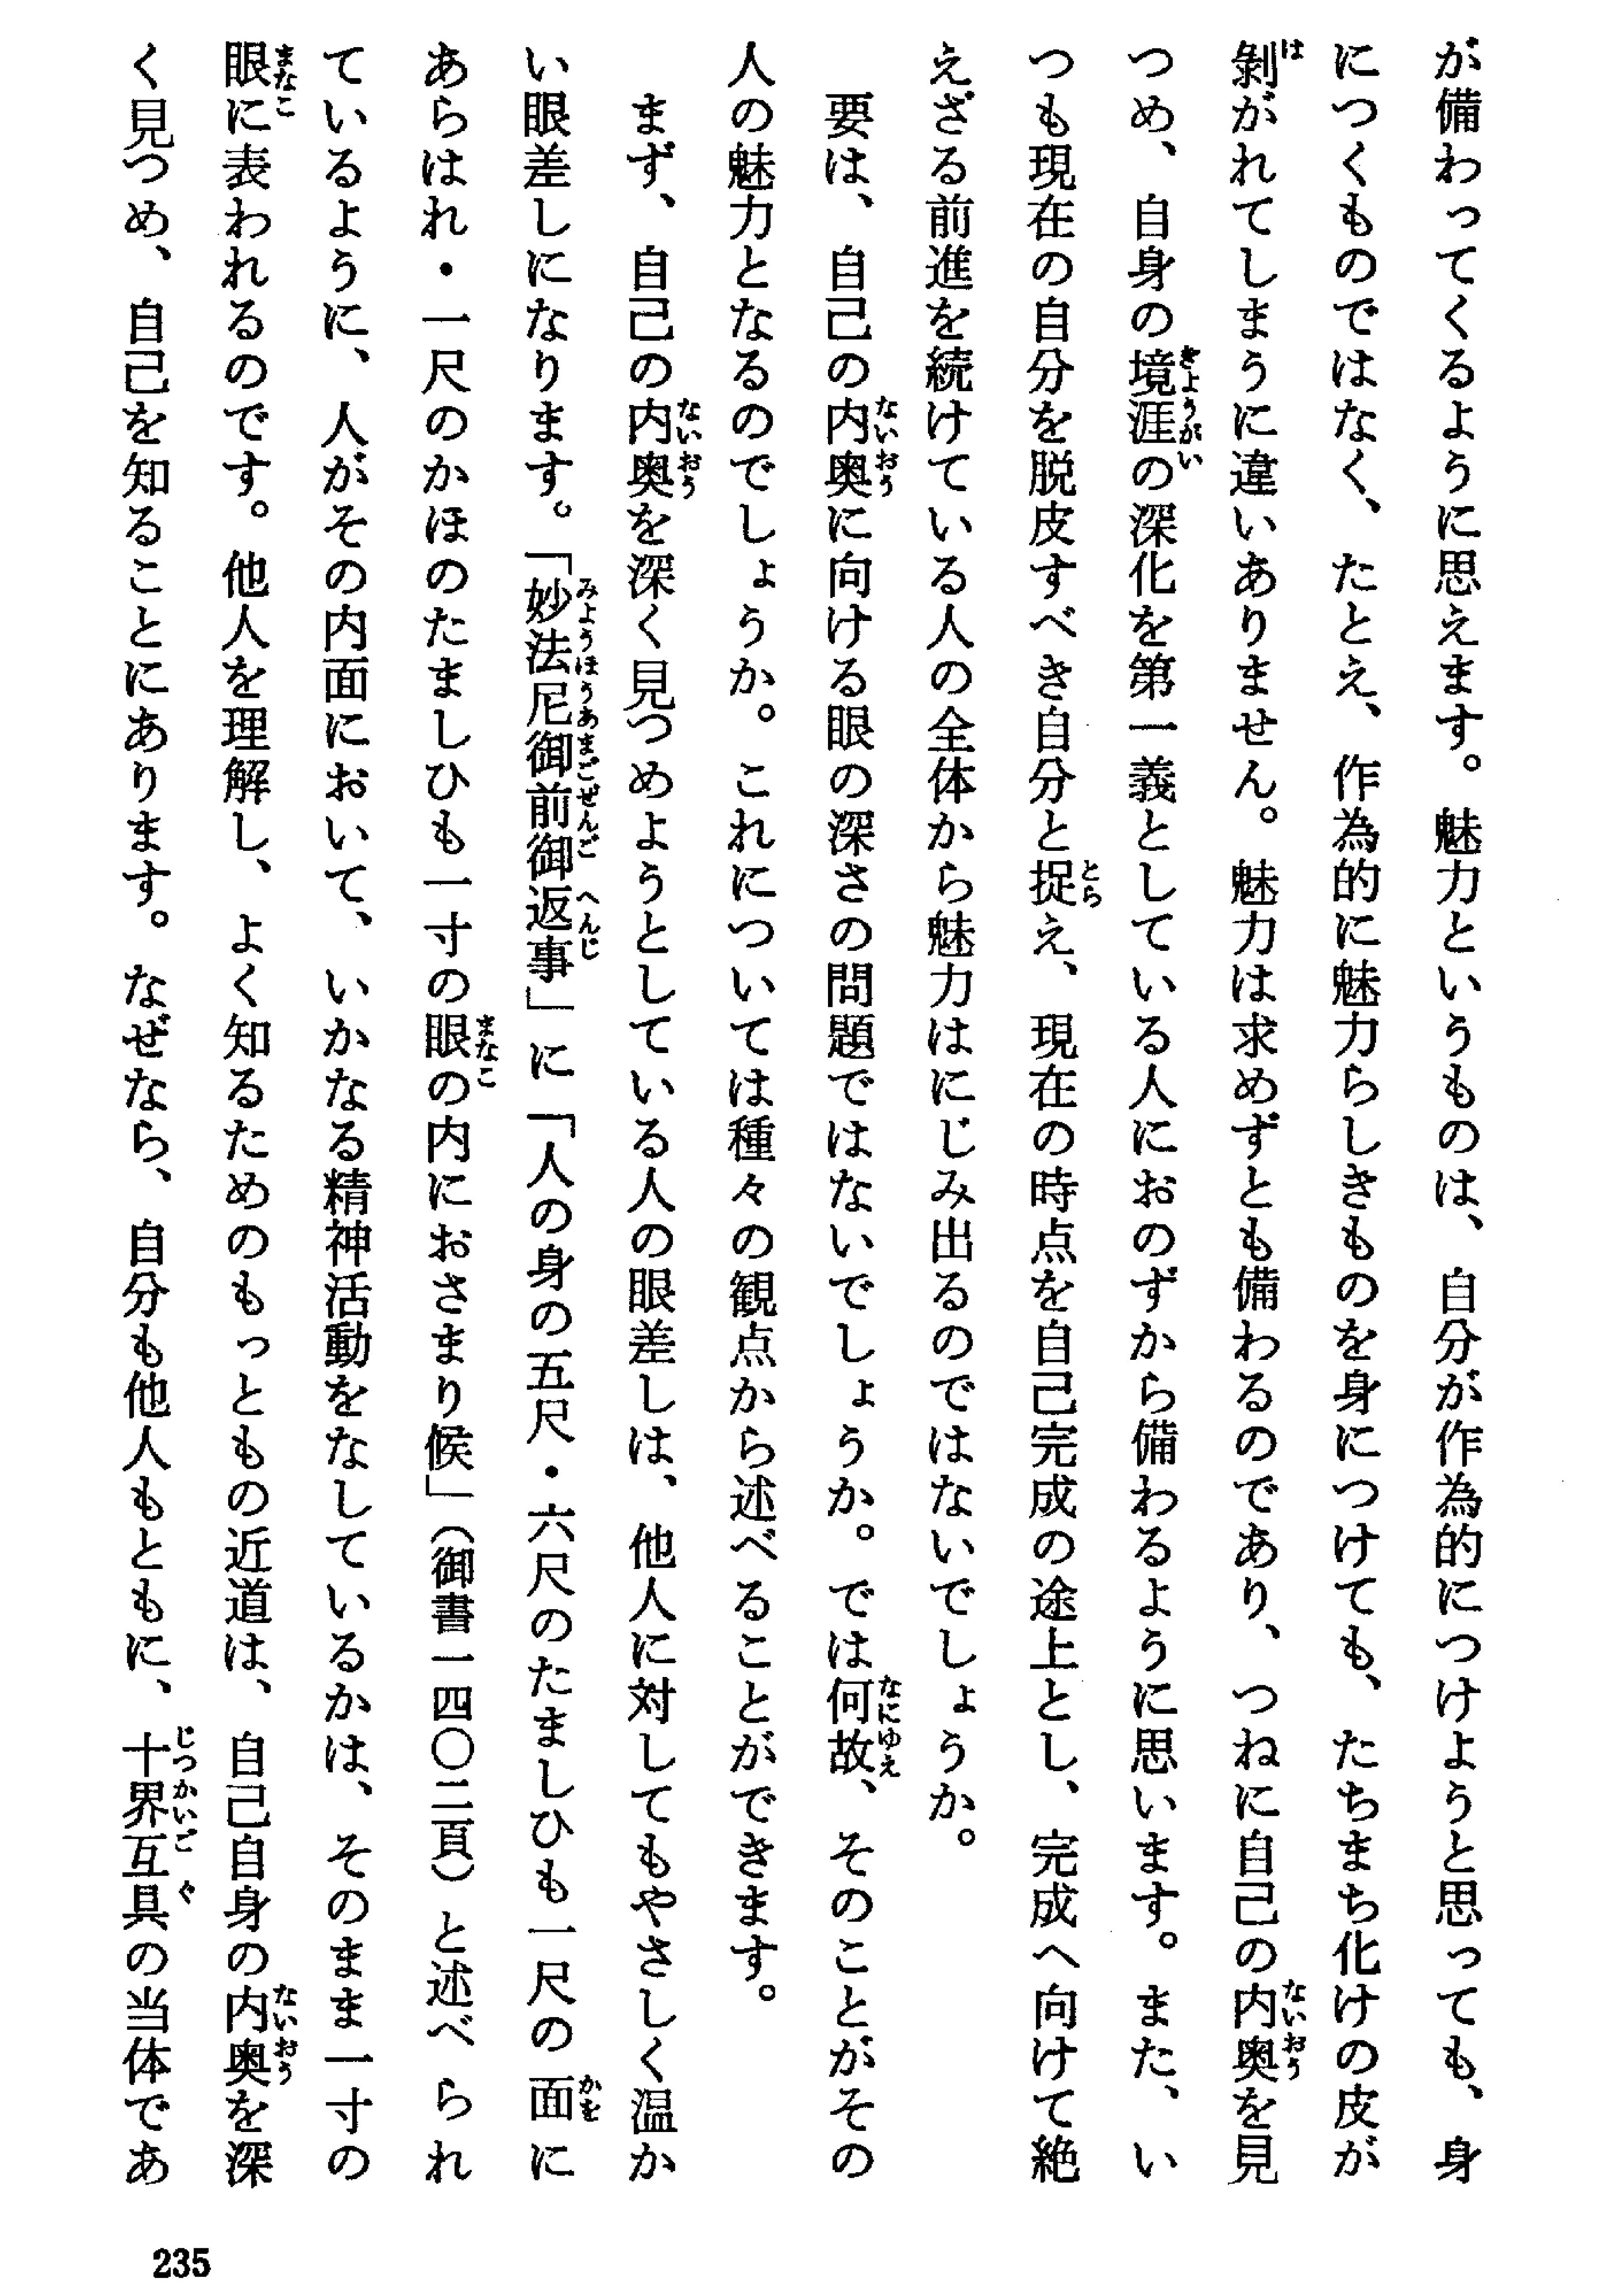 が備わってくるように思えます。魅力というものは、自分が作為的につけようと思っても、身
につくものではなく、たとえ、作為的に魅力らしきものを身につけても、たちまち化けの皮が
剝がれてしまうに違いありません。魅力は求めずとも備わるのであり、つねに自己の内奥を見
つめ、自身の境涯の深化を第一義としている人におのずから備わるように思います。また、い
つも現在の自分を脱皮すべき自分と捉え、現在の時点を自己完成の途上とし、完成へ向けて絶
えざる前進を続けている人の全体から魅力はにじみ出るのではないでしょうか。
要は、自己の内奥に向ける眼の深さの問題ではないでしょうか。では何故、そのことがその
人の魅力となるのでしょうか。これについては種々の観点から述べることができます。
まず、自己の内奥を深く見つめようとしている人の眼差しは、他人に対してもやさしく温か
い眼差しになります。「妙法尼御前御返事」に「人の身の五尺・六尺のたましひも一尺の面に
あらはれ・一尺のかほのたましひも一寸の眼の内におさまり候」（御書一四〇二頁）と述べられ
ているように、人がその内面において、いかなる精神活動をなしているかは、そのまま一寸の
眼に表われるのです。他人を理解し、よく知るためのもっともの近道は、自己自身の内奥を深
く見つめ、自己を知ることにあります。なぜなら、自分も他人もともに、十界互具の当体であ
235